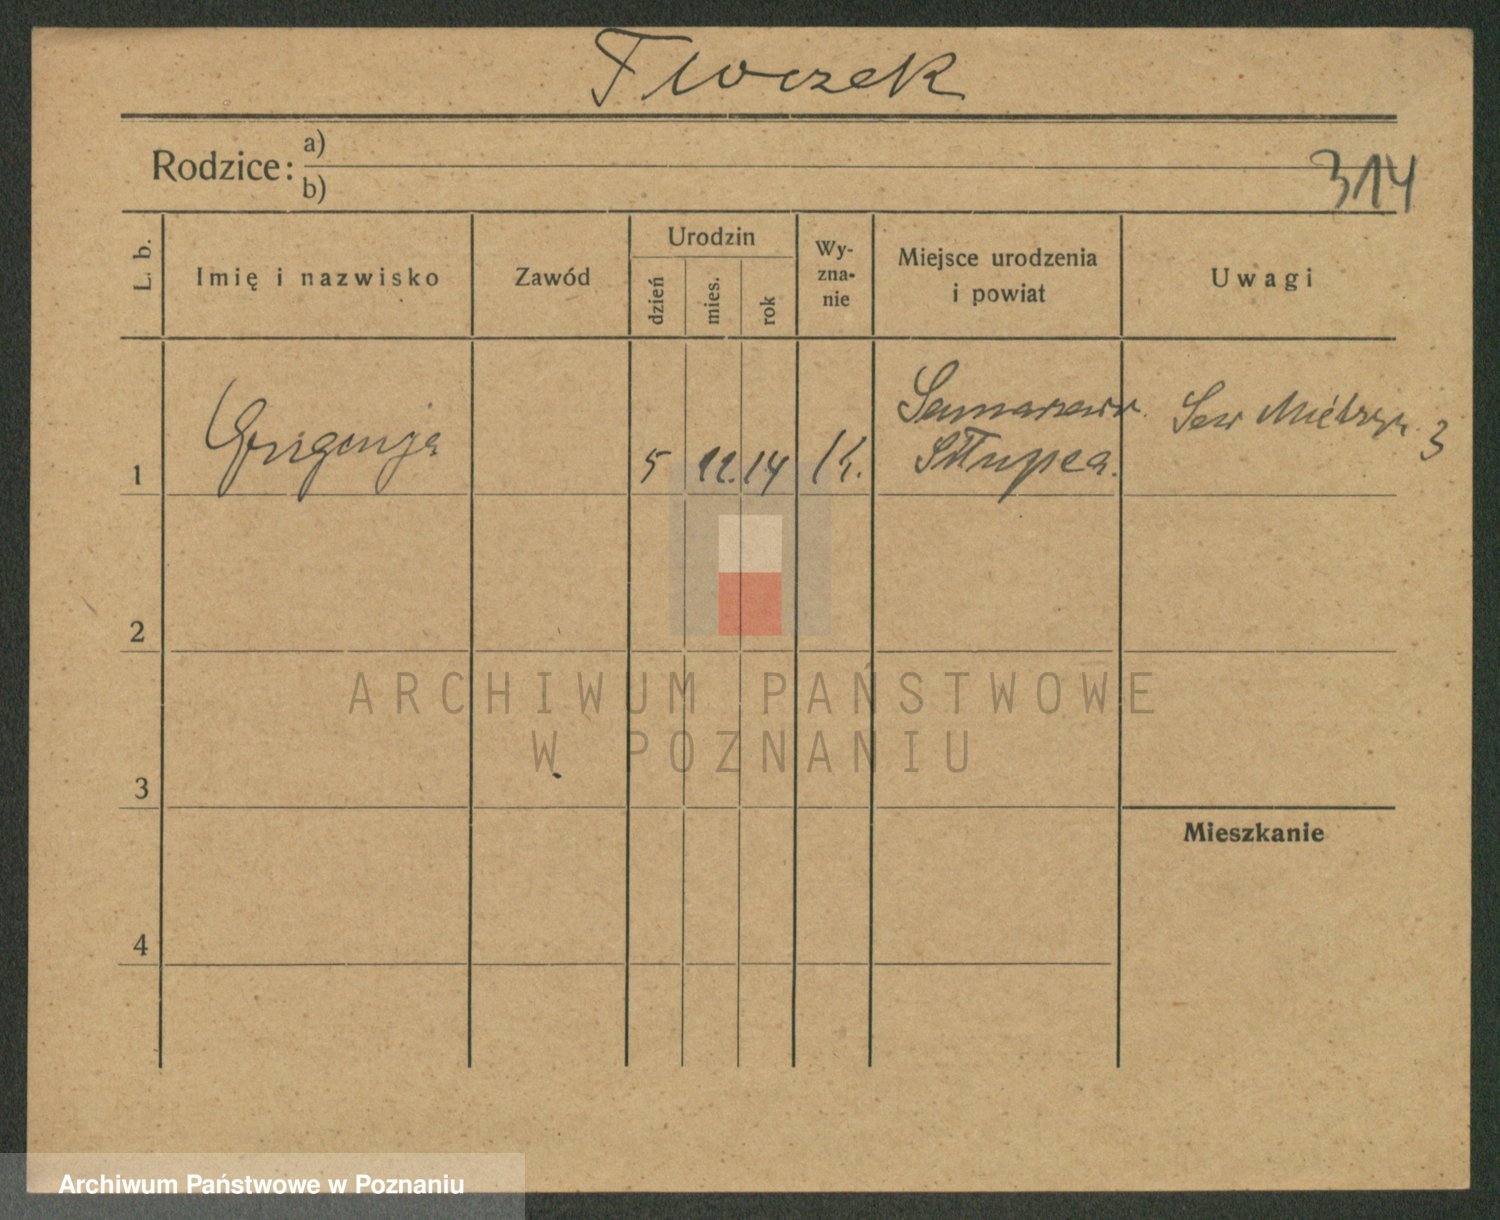 Tloczek
Rodzice: a)
b)
314
L. b.
Imię i nazwisko
Zawód
Urodzin
dzień
mies.
rok
Wy-
zna-
nie
Miejsce urodzenia
i powiat
Uwagi
1
5 11. 14 K.
Słupca.
3
2
3
4
Mieszkanie
ARCHIWUM PAŃSTWOWE
W POZNANIU
Archiwum Państwowe w Poznaniu